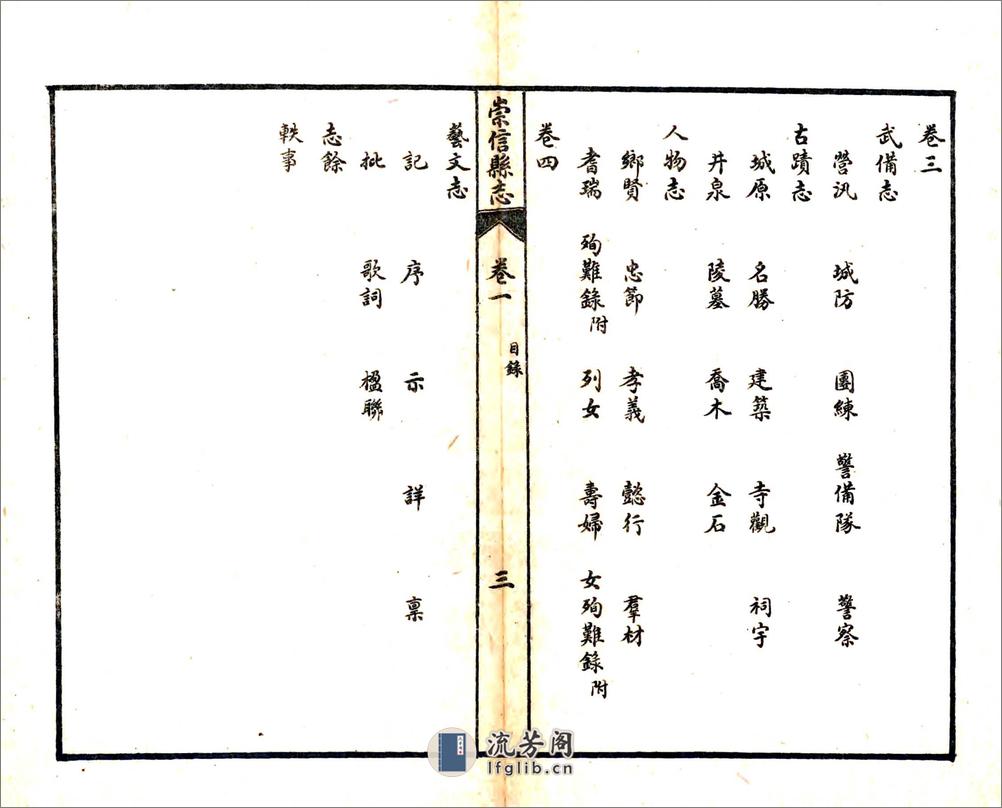 卷三
武備志
營汛 城防 團練 警備隊 警察
古蹟志
城原 名勝 建築 寺觀 祠宇
井泉 陵墓 喬木 金石
人物志
鄉賢 忠節 孝義 懿行 羣材
耆瑞 殉難錄附 列女 壽婦 女殉難錄附
卷四
崇信縣志 卷一 目錄 三
藝文志
記 序 示 詳 稟
批 歌詞 楹聯
志餘
軼事
流芳阁
lfglib.cn